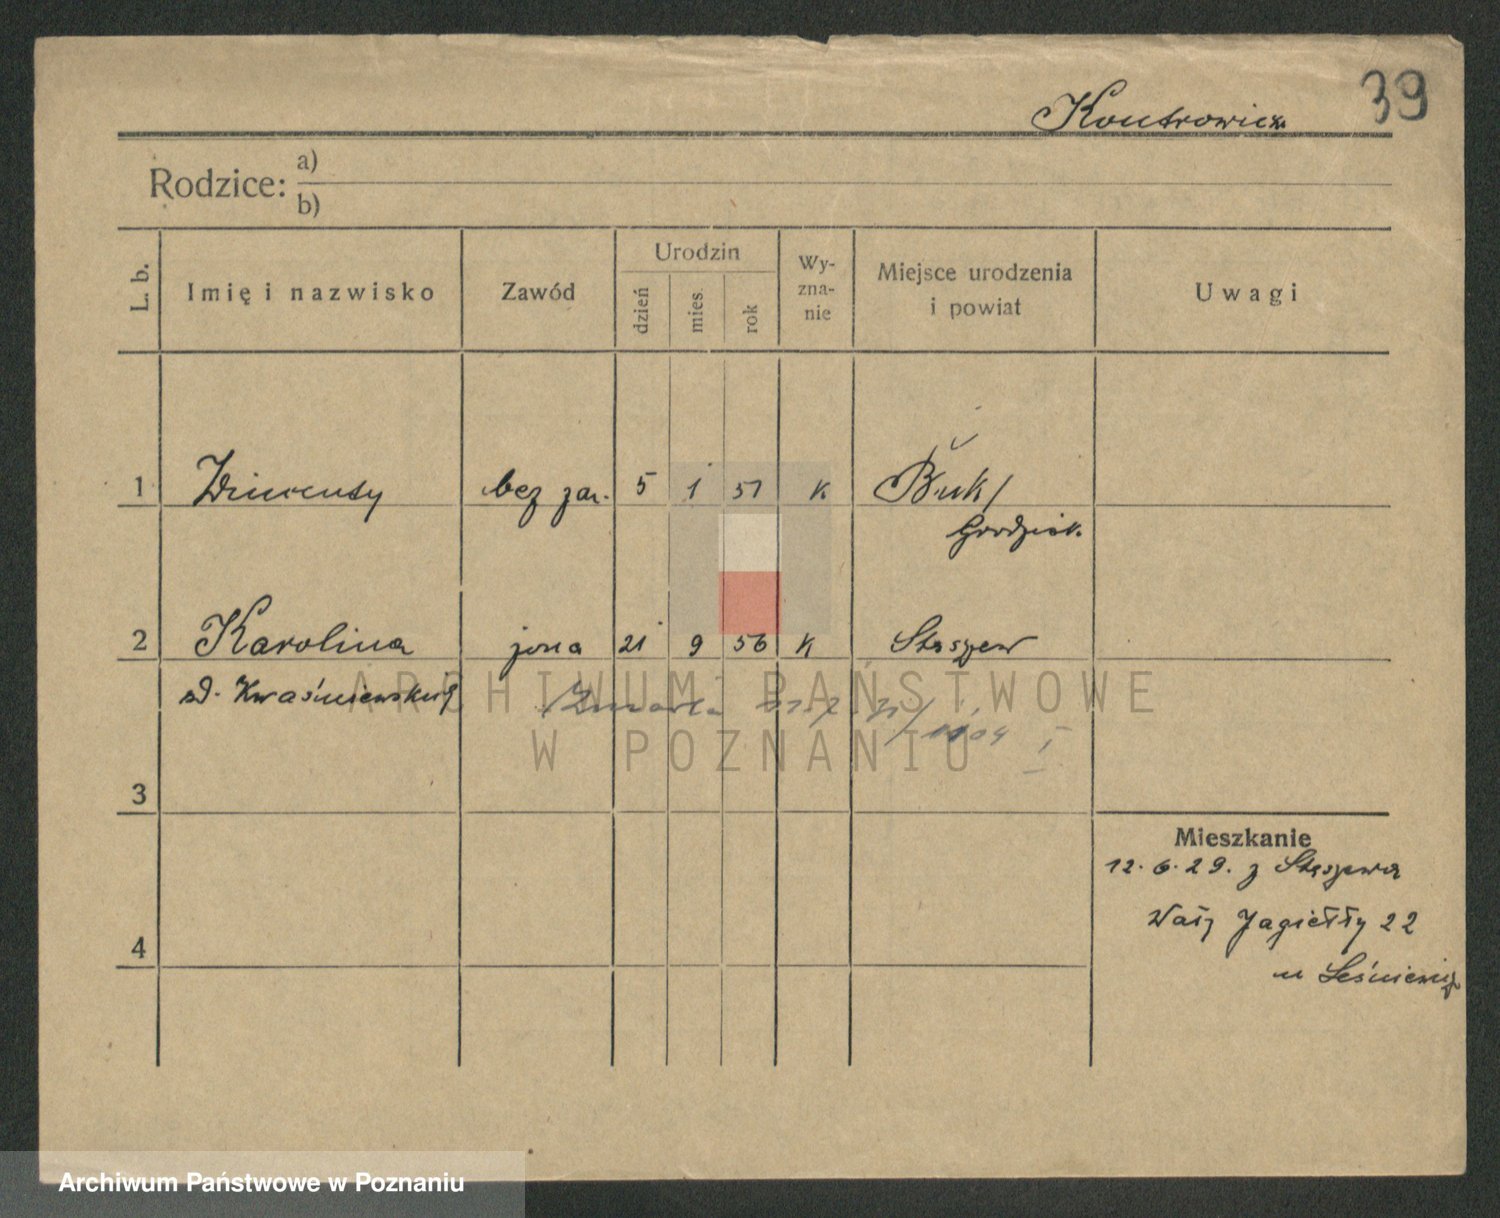 39
Kontrowicz
Rodzice: a)
b)
L. b. Imię i nazwisko Zawód Urodzin dzień mies. rok Wy-zna-nie Miejsce urodzenia i powiat Uwagi
1 Wincenty bez zaw. 5 1 51 K Buk/
Grodzisk.
2 Karolina żona 21 9 56 K Stęszew
zd. Kwaśniewskich
Zmarła
3
Mieszkanie
12.6.29. z Stęszewa
Wały Jagiełły 22
4
u Leśniewicz
ARCHIWUM PAŃSTWOWE
W POZNANIU
Archiwum Państwowe w Poznaniu